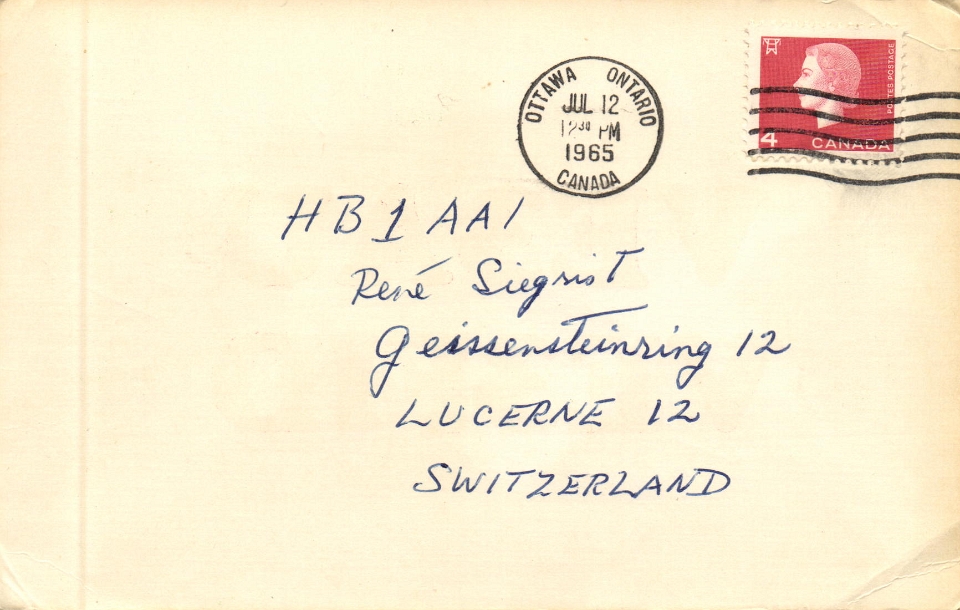 OTTAWA ONTARIO
JUL 12
12³⁰ PM
1965
CANADA
POSTES POSTAGE
4 CANADA
HB1AAI
René Siegrist
Geissensteinring 12
LUCERNE 12
SWITZERLAND